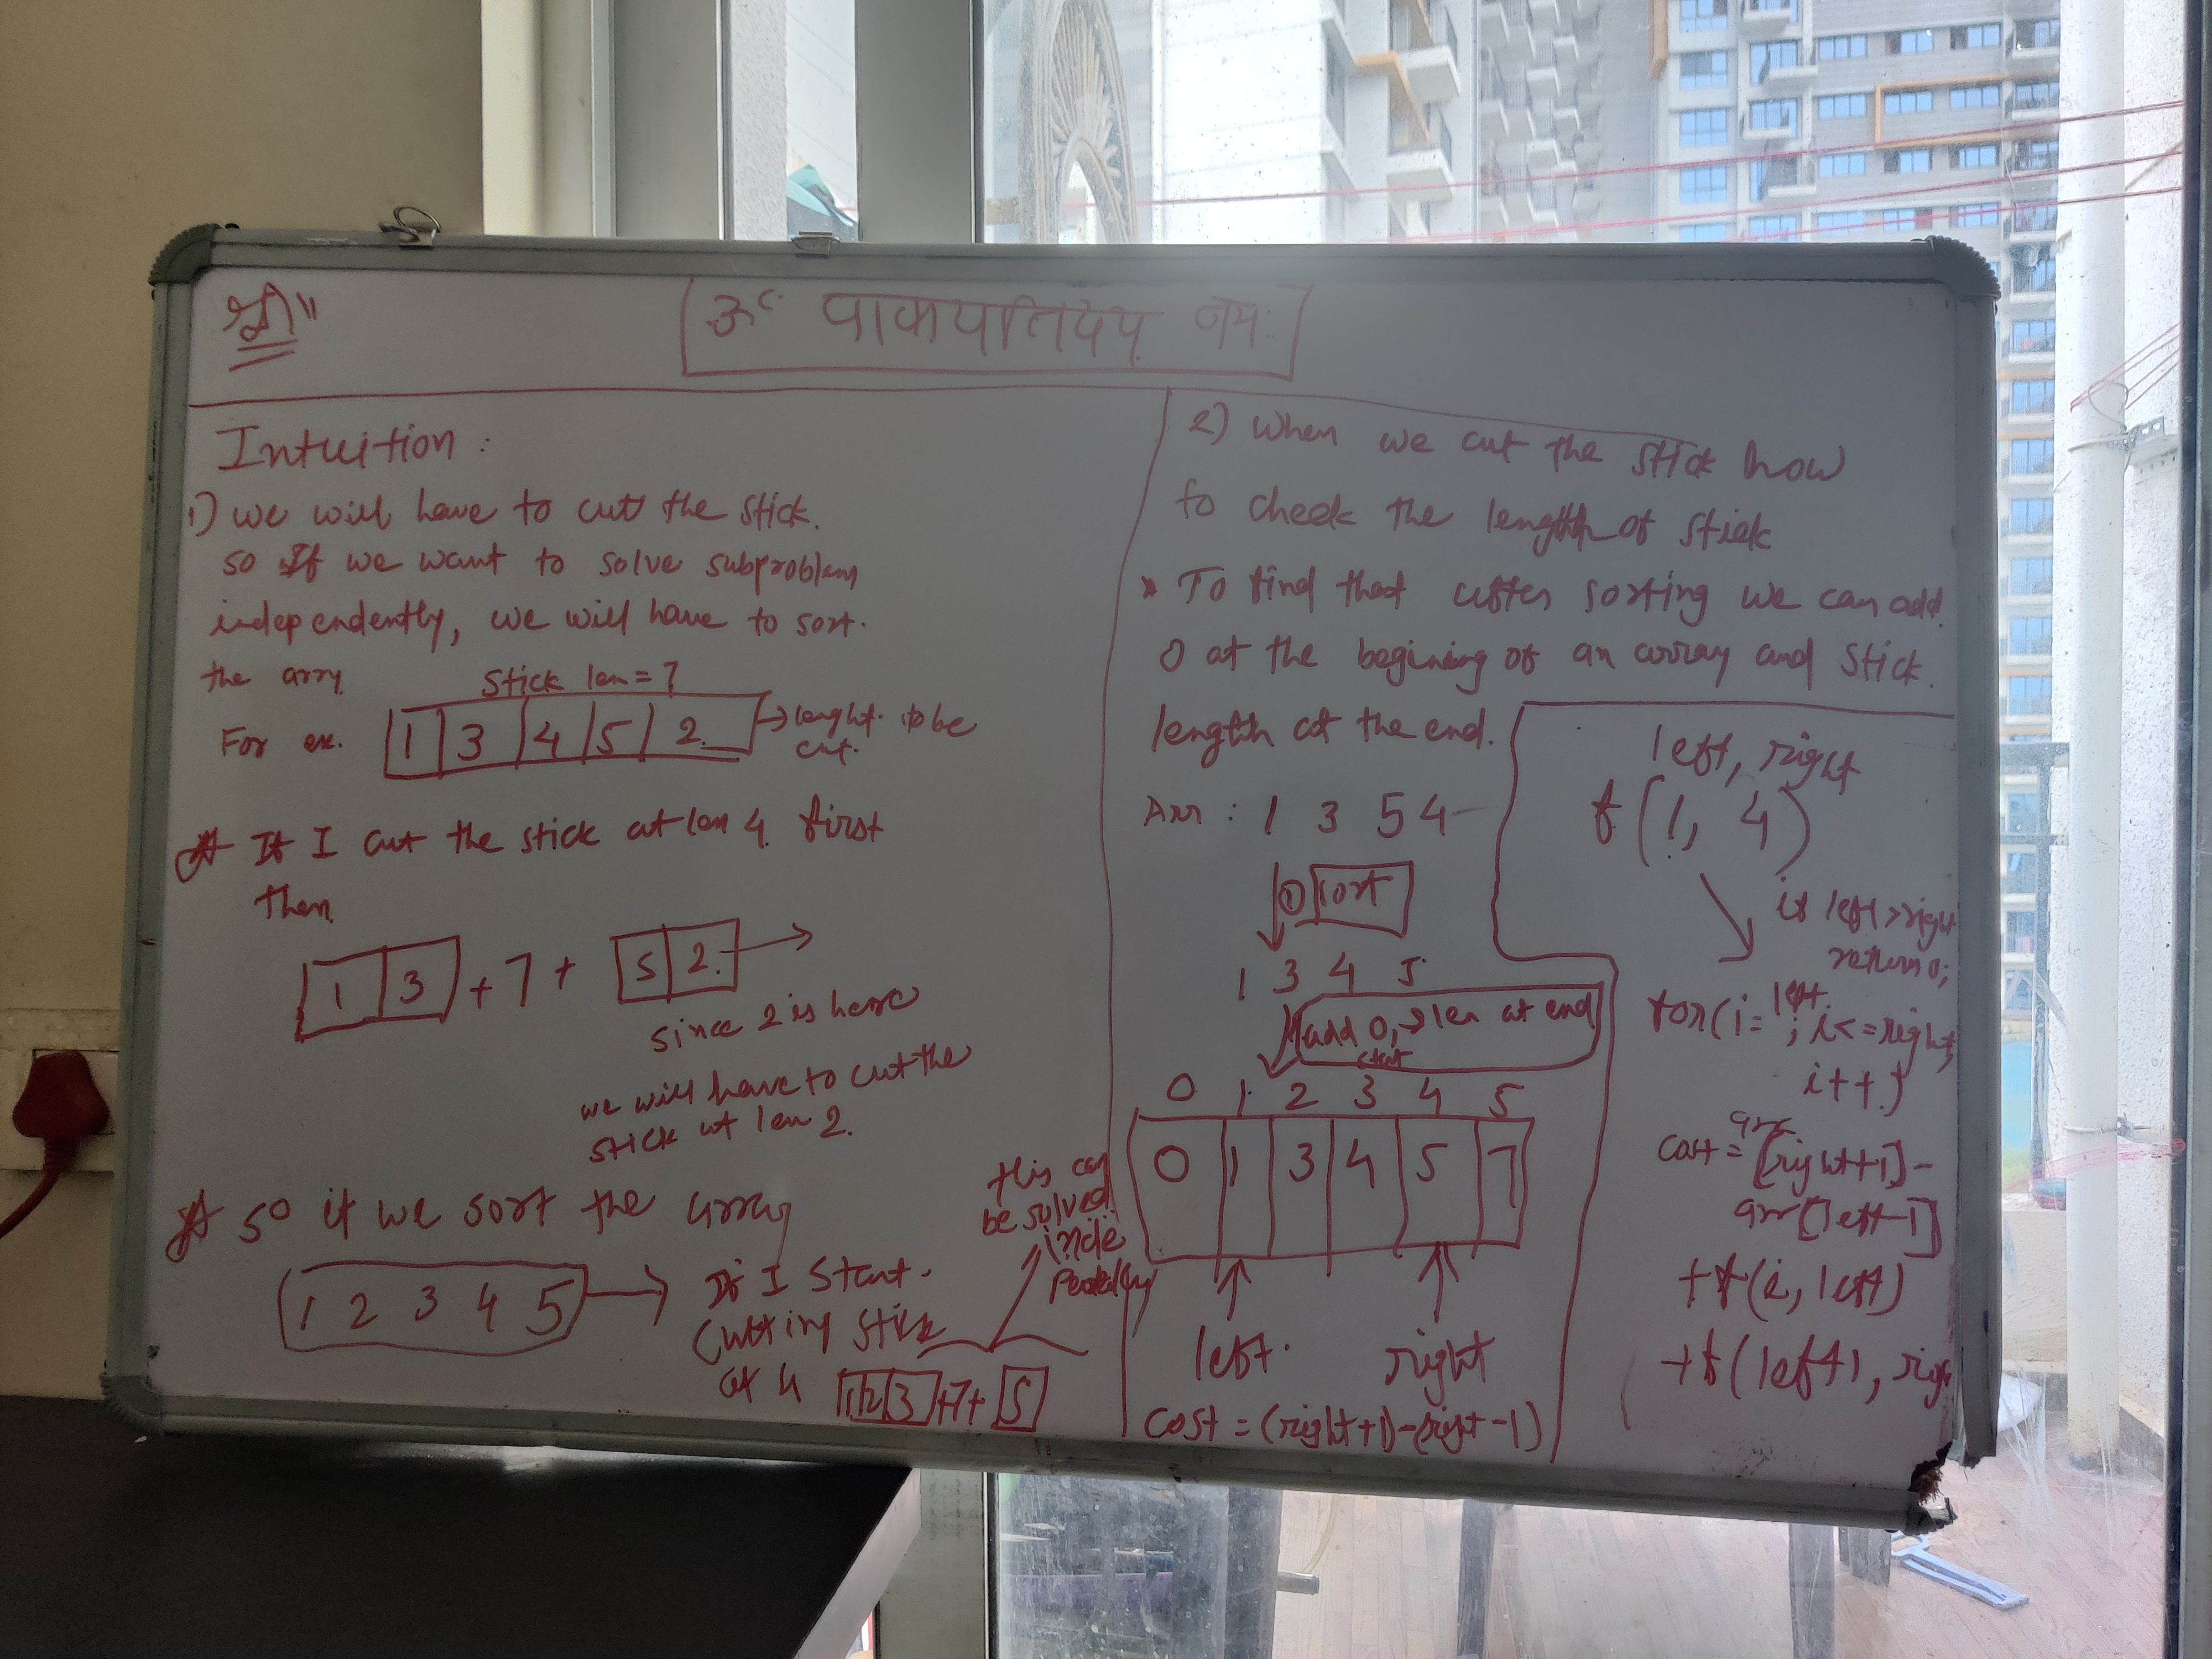 श्री॥
Intuition :
1) we will have to cut the stick.
so If we want to solve subproblem
independently, we will have to sort.
the arry
Stick len = 7
For ex. 1 3 4 5 2 → lenght to be
cut.
If I cut the stick at len 4 first
then
1 3 + 7 + 5 2 →
since 2 is here
we will have to cut the
stick at len 2.
So if we sort the array
1 2 3 4 5 → If I start
Cutting stick
at 4 1 2 3 +7+ 5
this can
be solved
inde
2) when we cut the stick how
to check the length of stick
» To find that after sorting we can add
0 at the begining of an array and stick.
length at the end.
Arr : 1 3 5 4
① sort
1 3 4 5
add 0, → len at end
start
0 1 2 3 4 5
0 1 3 4 5 7
left right
cost = (right+1)-(right-1)
left, right
f(1, 4)
if left>right
return 0;
for(i= left; i<=right;
i++)
cost = arr[right+1]-
arr[left-1]
+f(i, left)
+f(left+1, righ